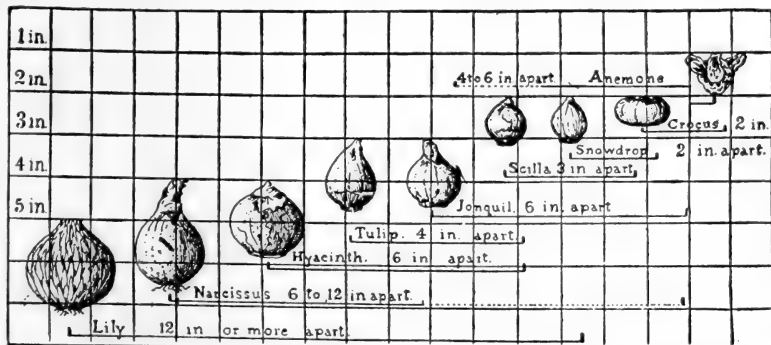 1 in.
2 in.
4 to 6 in apart. Anemone
3 in.
Crocus 2 in.
Snowdrop 2 in. apart.
4 in.
Scilla 3 in apart
5 in.
Jonquil. 6 in. apart
Tulip. 4 in. apart.
Hyacinth. 6 in. apart.
Narcissus 6 to 12 in apart.
Lily 12 in or more apart.